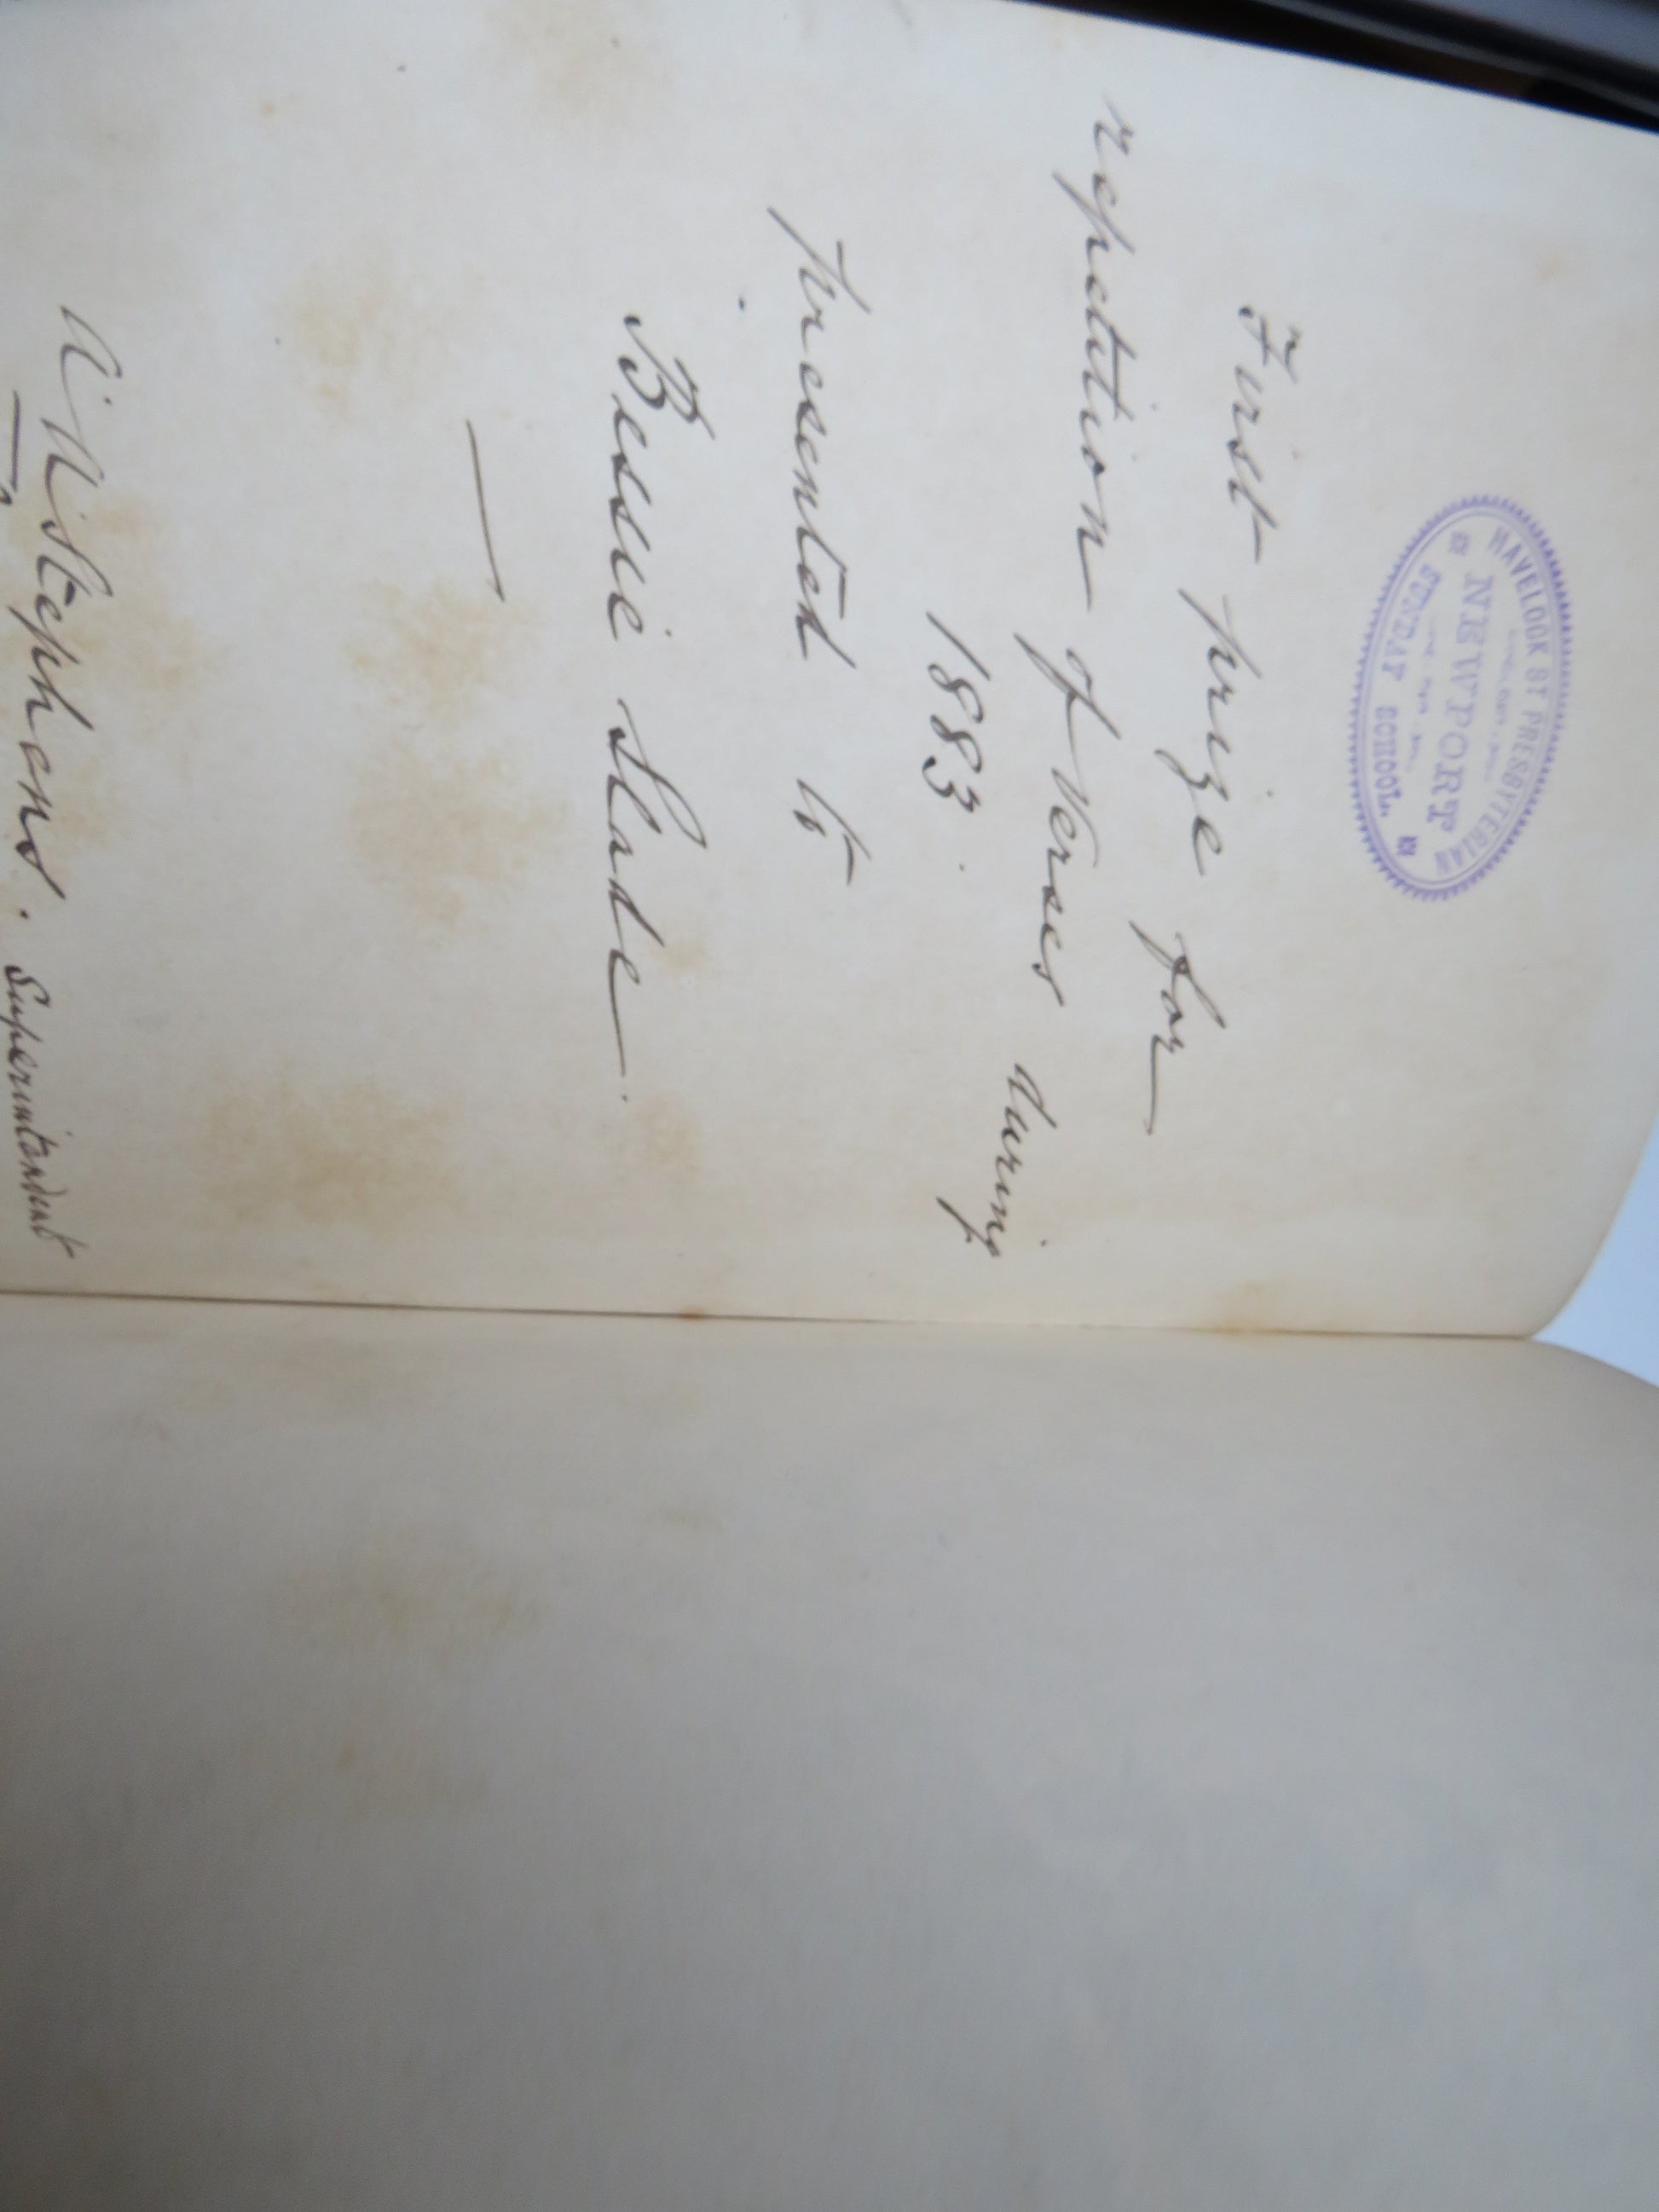 HAVELOCK ST PRESBYTERIAN
NEWPORT
SUNDAY SCHOOL
First prize for
repetition of Verses during
1883.
presented to
Bessie Slade.
Stephens. Superintendent